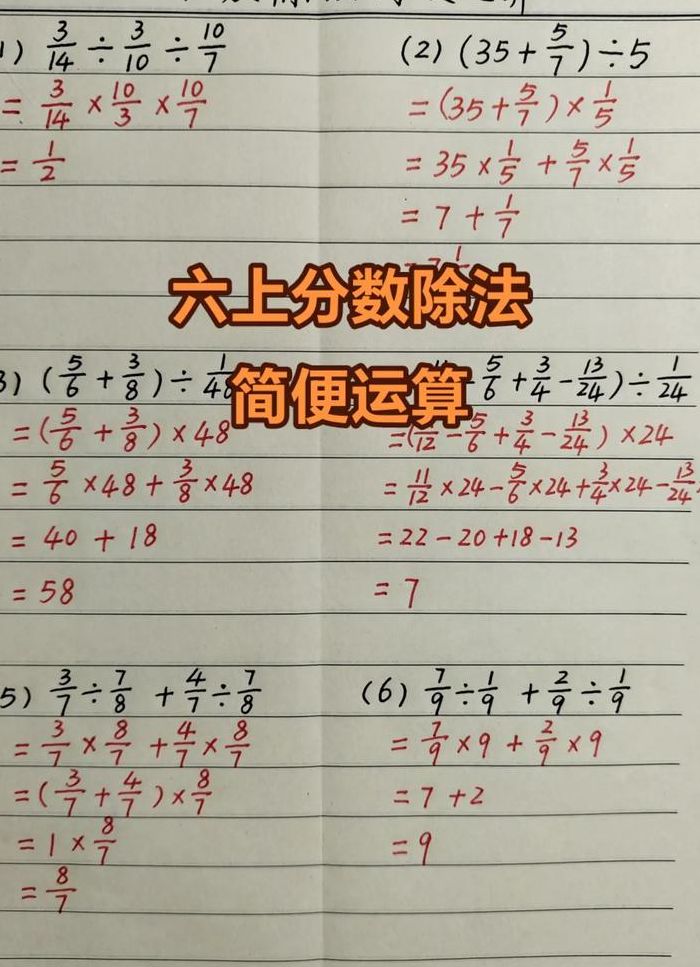 1) 3/14 ÷ 3/10 ÷ 10/7
= 3/14 × 10/3 × 10/7
= 1/2
(2) (35 + 5/7) ÷ 5
= (35 + 5/7) × 1/5
= 35 × 1/5 + 5/7 × 1/5
= 7 + 1/7
六上分数除法
简便运算
3) (5/6 + 3/8) ÷ 1/48
= (5/6 + 3/8) × 48
= 5/6 × 48 + 3/8 × 48
= 40 + 18
= 58
- 5/6 + 3/4 - 13/24) ÷ 1/24
= (11/12 - 5/6 + 3/4 - 13/24) × 24
= 11/12 × 24 - 5/6 × 24 + 3/4 × 24 - 13/24
= 22 - 20 + 18 - 13
= 7
5) 3/7 ÷ 7/8 + 4/7 ÷ 7/8
= 3/7 × 8/7 + 4/7 × 8/7
= (3/7 + 4/7) × 8/7
= 1 × 8/7
= 8/7
(6) 7/9 ÷ 1/9 + 2/9 ÷ 1/9
= 7/9 × 9 + 2/9 × 9
= 7 + 2
= 9